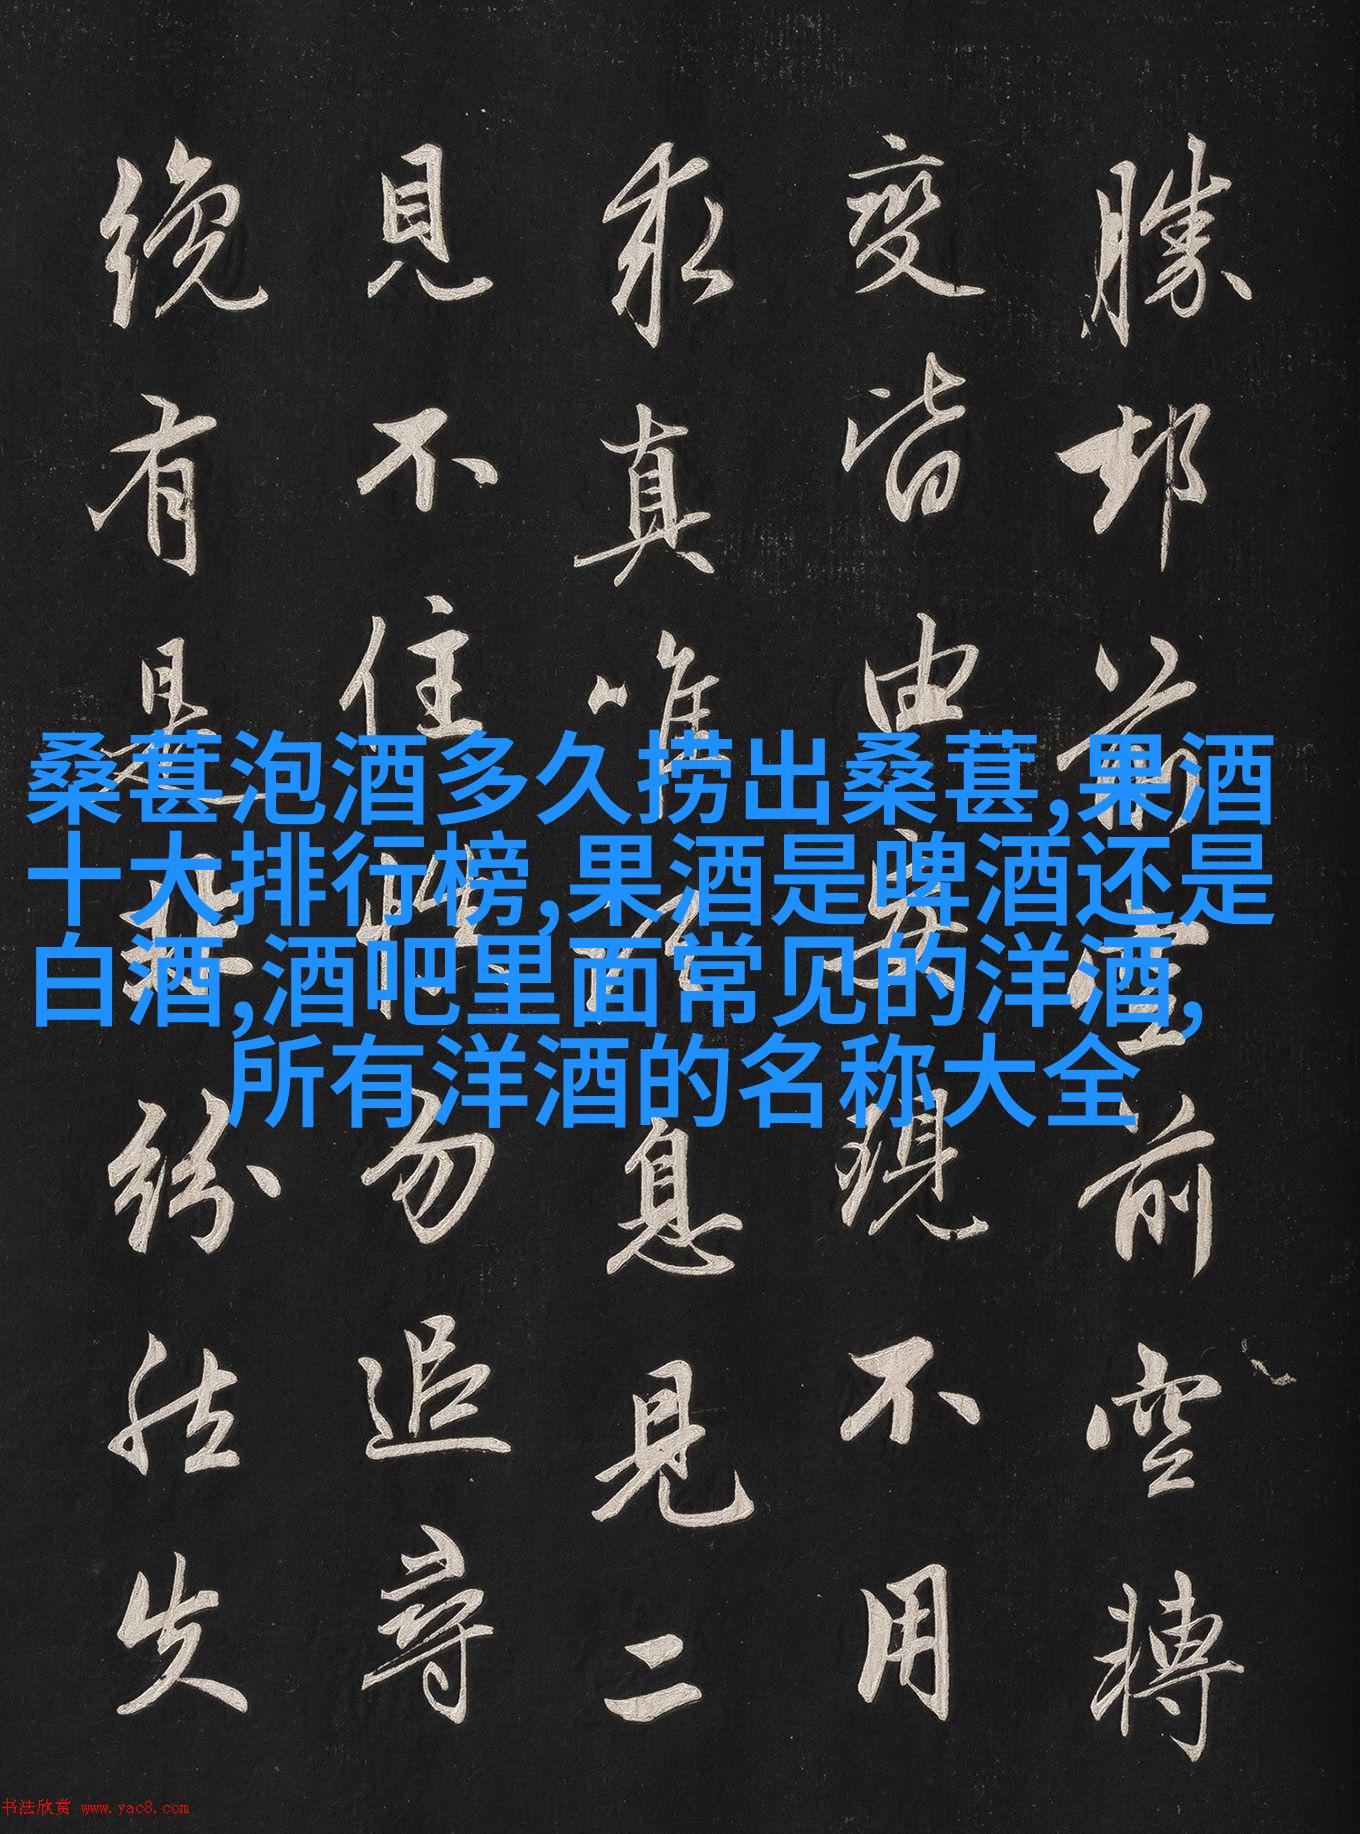 勝却前空前空轉
變皆由妄現不用
求真唯息見二
見不住勿追尋
纔有是非紛然失
桑葚泡酒多久捞出桑葚,果酒
十大排行榜,果酒是啤酒还是
白酒,酒吧里面常见的洋酒,
所有洋酒的名称大全
书法欣赏 www.yac8.com